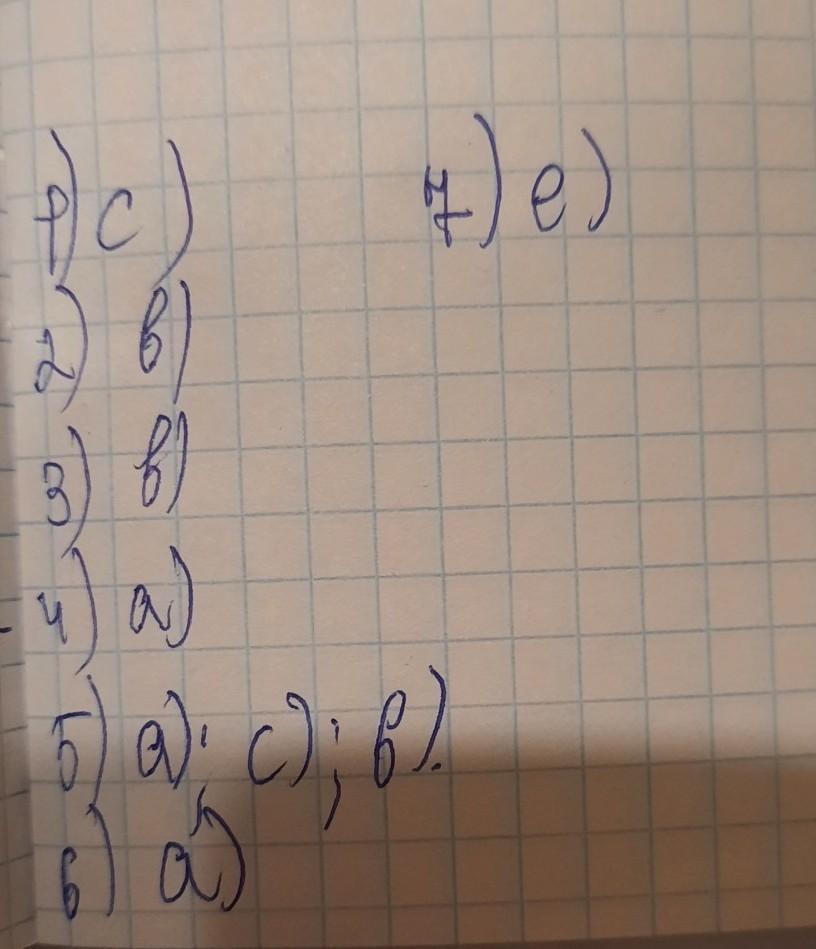 1) c)
2) b)
3) b)
4) a)
5) a); c); b).
6) a)
7) e)